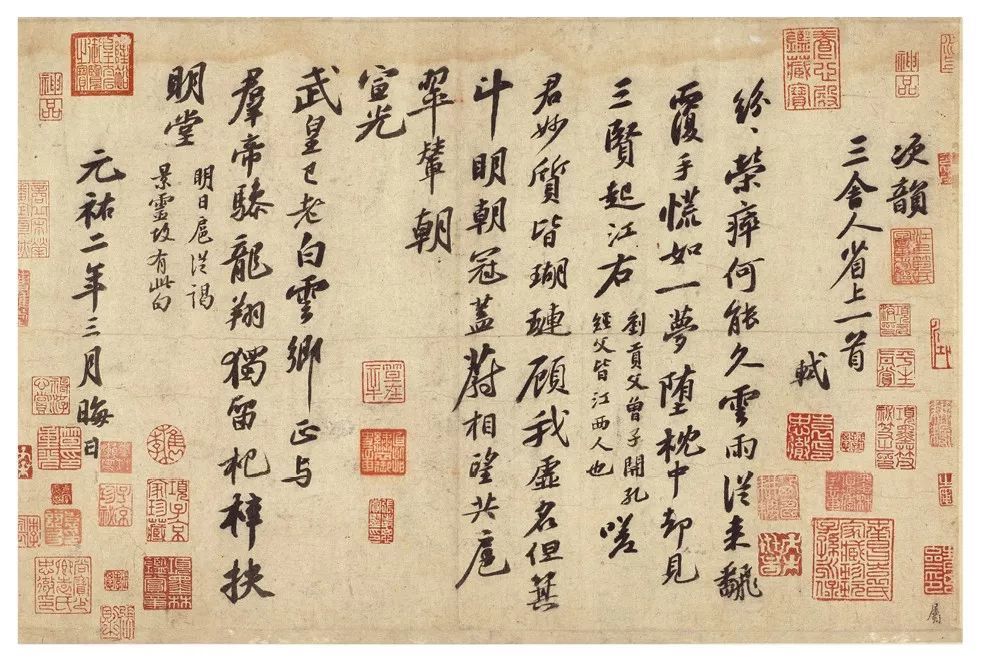 神品
養心殿鑑藏寶
次韻
三舍人省上一首
軾
紛、榮瘁何能久雲雨從来翻
覆手慌如一夢墮枕中却見
三賢起江右
劉貢父曾子開孔
經父皆江西人也
嗟
君妙質皆瑚璉顧我虛名但箕
斗明朝冠蓋蔚相望共扈
翠輦朝
宣光
武皇已老白雲鄉正与
羣帝驂龍翔獨留杞梓扶
明堂
明日扈從謁
景靈故有此句
元祐二年三月晦日
神品
項子京家珍藏
項墨林鑑賞章